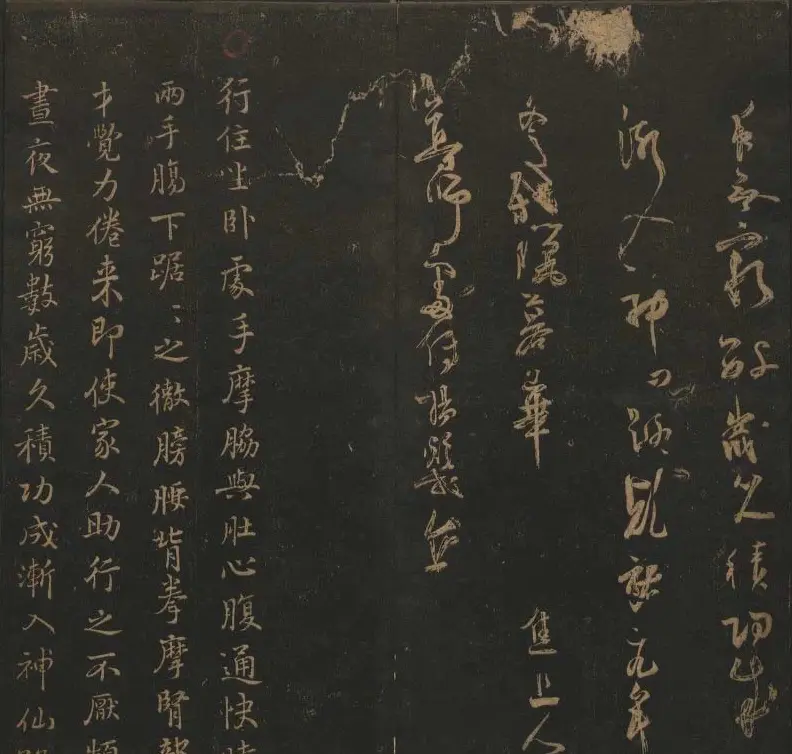 夜無窮數歲久積功成
漸入神仙路乾祐元年
冬殘臘暮華 焦上人
尊師處傳楊凝式
行住坐卧處手摩脇與肚心腹通快時
兩手腸下踞〻之徹膀腰背拳摩腎部
才覺力倦来即使家人助行之不厭頻
晝夜無窮數歲久積功成漸入神仙路